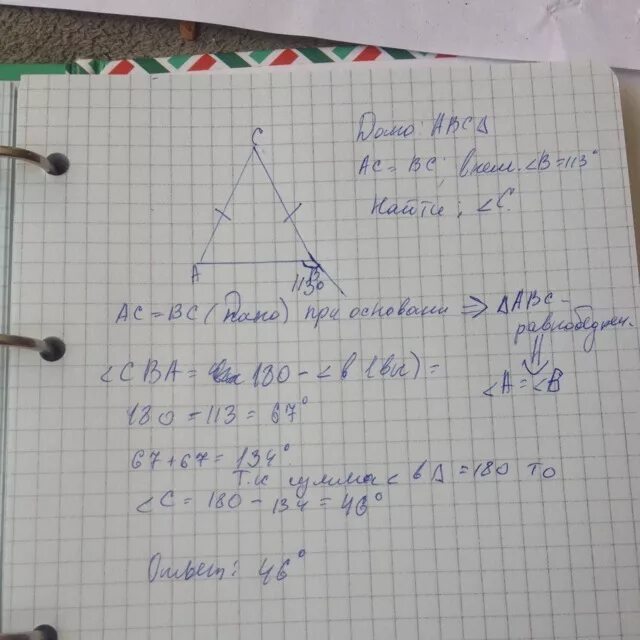 Дано: ABC∆
AC = BC; внеш. ∠B = 113°
Найти: ∠C.
C
A
B
113°
AC = BC (Дано) при основани ⇒ ∆ABC -
равнобедрен.
⇓
∠A = ∠B
∠CBA = 180 - ∠B (вн) =
180 - 113 = 67°
67 + 67 = 134°.
Т.к сумма ∠ в ∆ = 180 то
∠C = 180 - 134 = 46°
Ответ: 46°